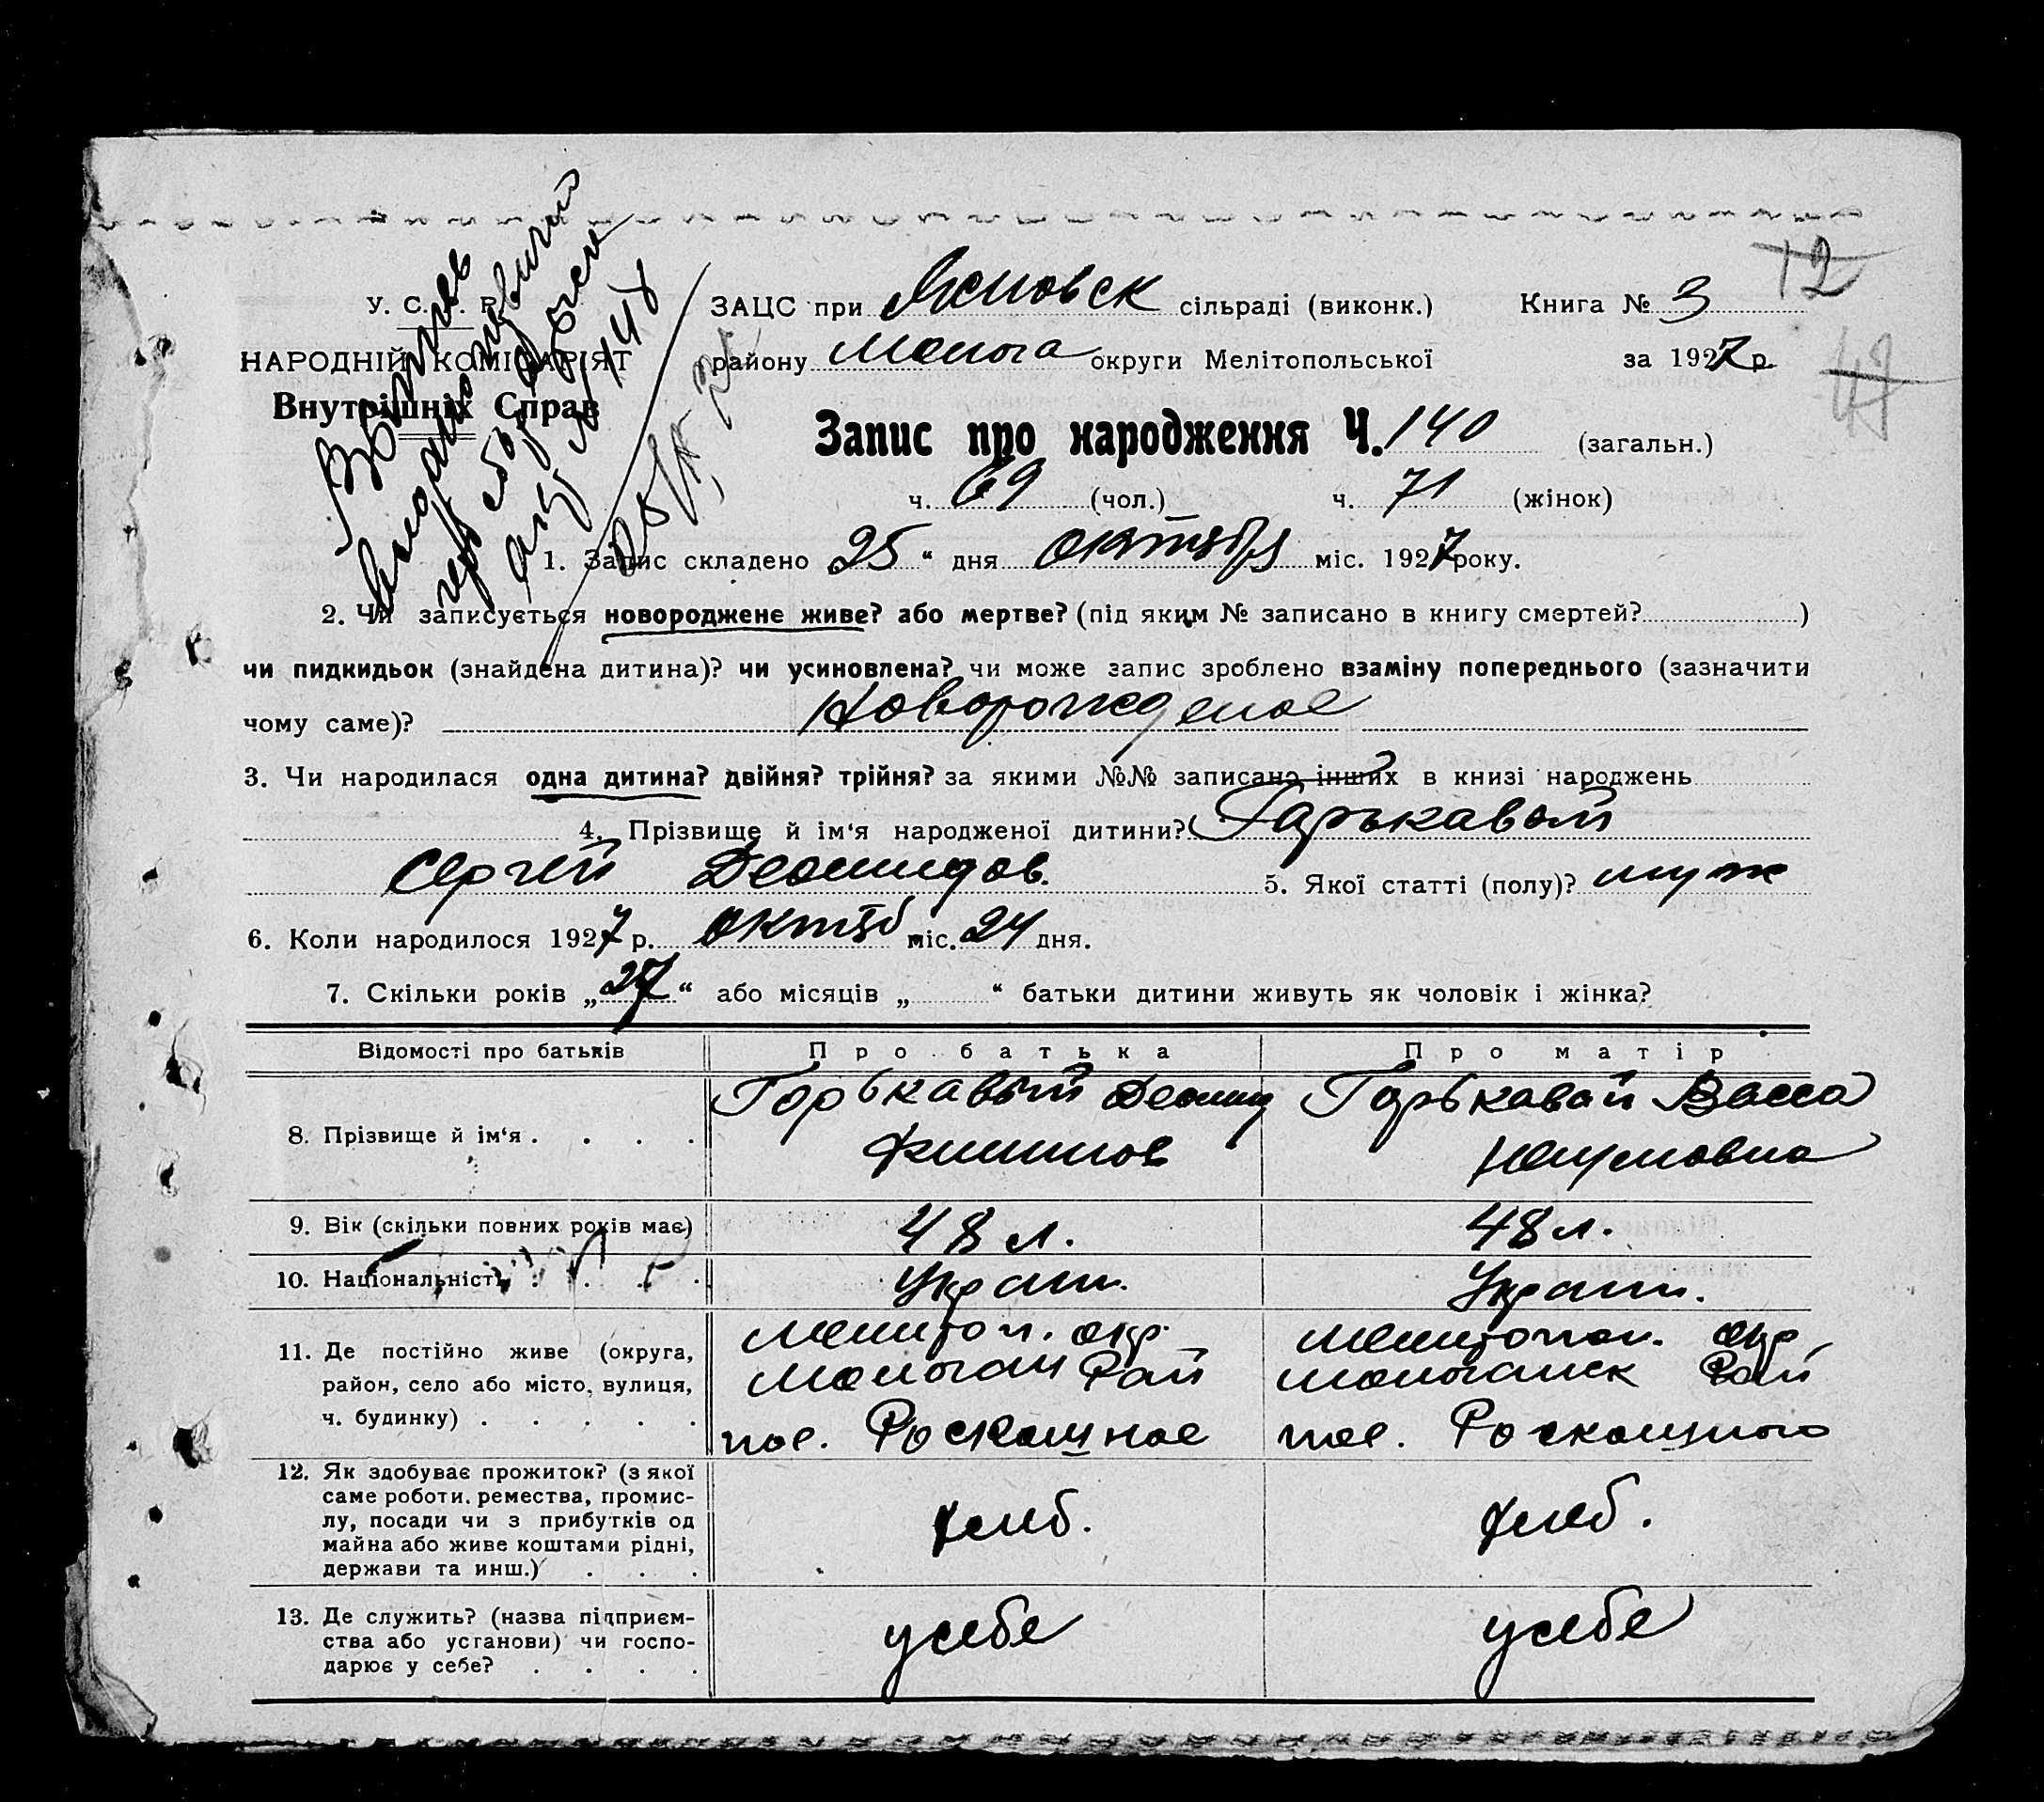 12
У. С. Р. Р.
НАРОДНІЙ КОМІСАРІЯТ
Внутрішніх Справ
ЗАЦС при Ясновск сільраді (виконк.) Книга № 3
району округи Мелітопольської за 1927 р.
Запис про народження Ч. 140 (загальн.)
ч. 69 (чол.) ч. 71 (жінок)
1. Запис складено 25 “ дня октября міс. 1927 року.
2. Чи записується новороджене живе? або мертве? (під яким № записано в книгу смертей? )
чи пидкидьок (знайдена дитина)? чи усиновлена? чи може запис зроблено взаміну попереднього (зазначити
чому саме)? Новорожденое
3. Чи народилася одна дитина? двійня? трійня? за якими №№ записано інших в книзі народжень
4. Прізвище й ім‘я народженої дитини? Горькавый
Сергей Леонидов. 5. Якої статті (полу)? муж
6. Коли народилося 1927 р. октяб міс. 24 дня.
7. Скільки років „ 27 “ або місяців „ “ батьки дитини живуть як чоловік і жінка?
Відомості про батьків Про батька Про матір
8. Прізвище й ім‘я . . . . Горькавый Леонид Горькавай Васса
Филипов Наумовна
9. Вік (скільки повних років має) 48 л. 48 л.
10. Національність . . . . Украин. Украин.
11. Де постійно живе (округа, Мелитоп. окр. Мелитопол. окр.
район, село або місто, вулиця, Молочан Рай Молочанск Рай
ч. будинку) . . . . . пос. Роскошное пос. Роскошного
12. Як здобуває прожиток? (з якої
саме роботи. ремества, промис-
лу, посади чи з прибутків од хлеб. хлеб.
майна або живе коштами рідні,
держави та инш.) . . .
13. Де служить? (назва підприєм-
ства або установи) чи госпо- у себе у себе
дарює у себе? . . . .